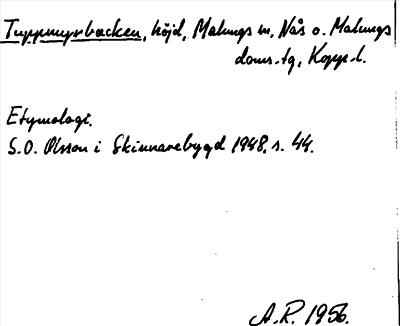 Tuppmyrbacken, höjd, Malungs sn, Nås o. Malungs
doms.-tg, Kopp. l.
Etymologi.
S.O. Olsson i Skinnarebygd 1948, s. 44.
A.R. 1956.